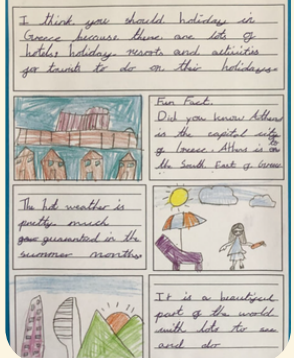 I think you should holiday in
Greece because there are lots of
hotels, holiday resorts and activities
for tourists to do on their holidays.
Fun Fact.
Did you know Athens
is the capital city
of Greece. Athens is on
the South East of Greece
The hot weather is
pretty much
guaranteed in the
summer months
It is a beautiful
part of the world
with lots to see
and do